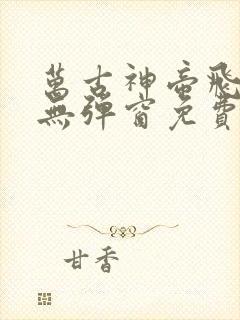 萬古神帝飛
無彈窗免費
甘香